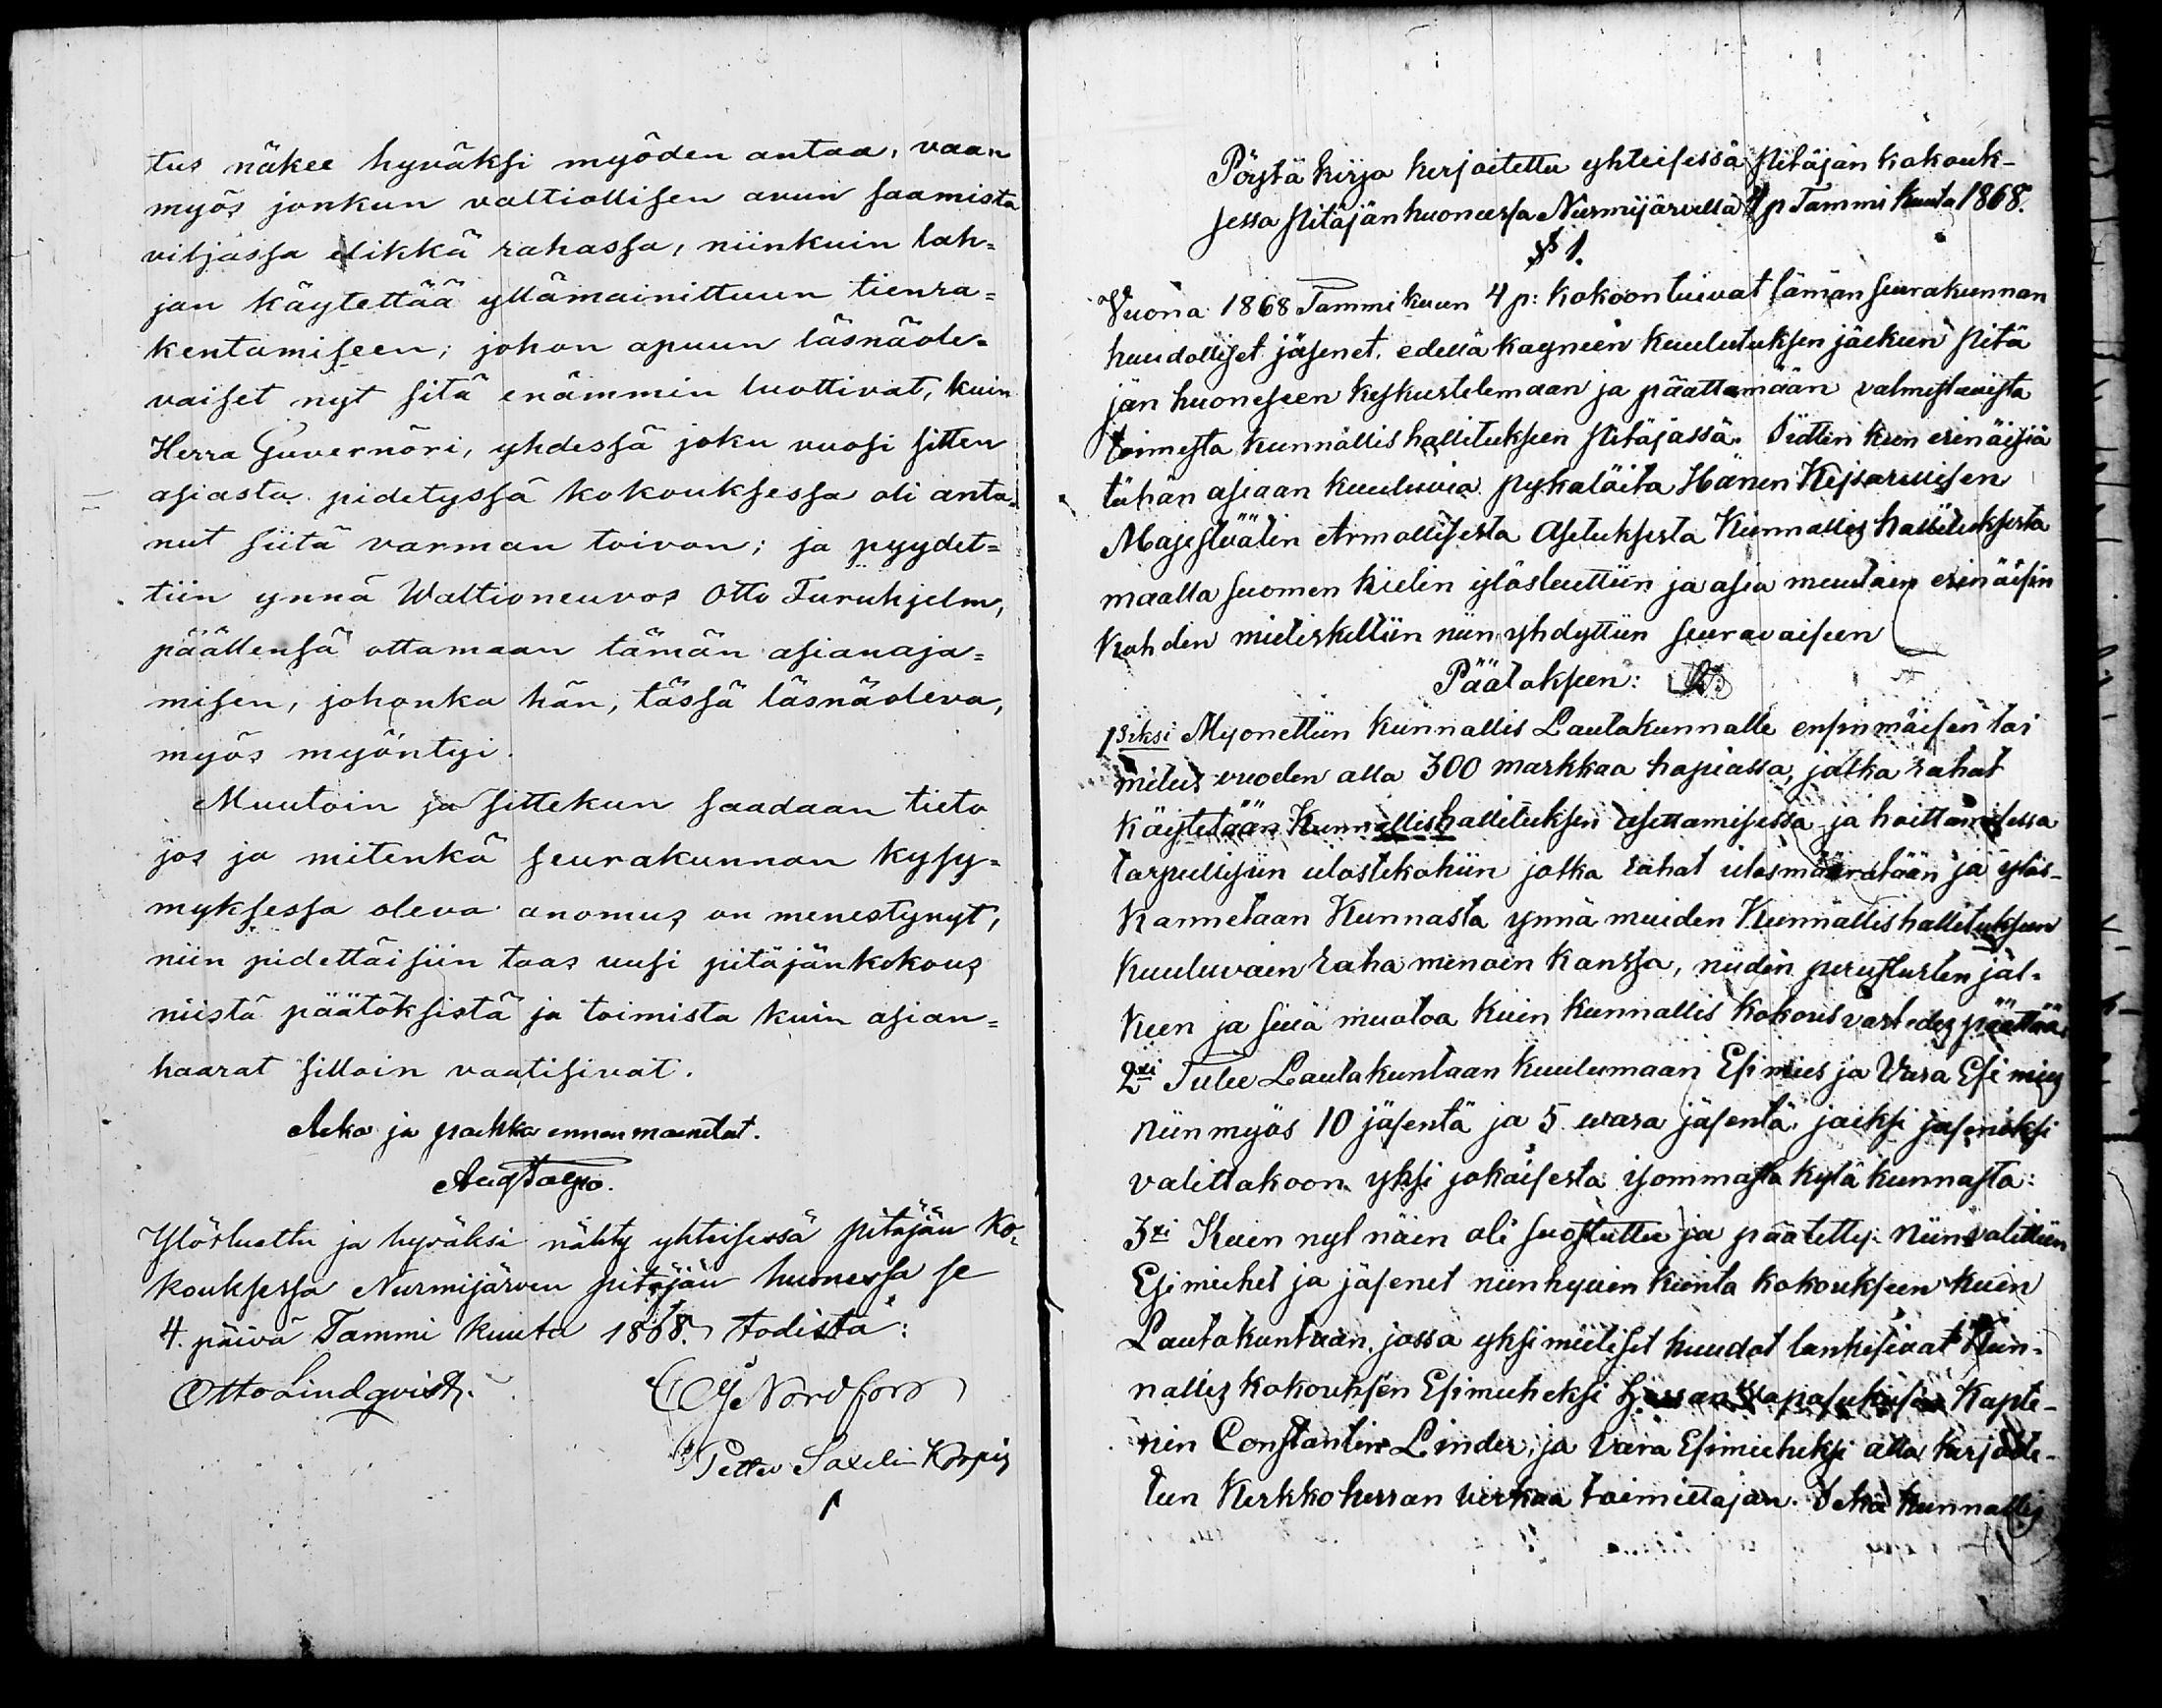 tus näkee hyväksi myöden antaa, vaan
myös jonkun valtiollisen avun saamista
viljassa elikkä rahassa, niinkuin lah=
jan käytettää yllämainittuun tienra=
kentamiseen; johon apuun läsnäole=
vaiset nyt sitä enämmin luottivat, kuin
Herra Guvernöri, yhdessä joku vuosi sitten
asiasta pidetyssä kokouksessa oli anta=
nut siitä varman toivon; ja pyydet=
tiin ynnä Waltioneuvos Otto Furuhjelm,
päällensä ottamaan tämän asianaja=
misen, johonka hän, tässä läsnäoleva,
myös myöntyi.
Muutoin ja sittekun saadaan tieto
jos ja mitenkä seurakunnan kysy=
myksessa oleva anomus on menestynyt,
niin pidettäisiin taas uusi pitäjänkokous
niistä päätöksistä ja toimista kuin asian=
haarat silloin vaatisivat.
Aeka ja paikka ennen mainitut.
Ylösluettu ja hyväksi nähty yhteisessä pitäjän ko=
kouksessa Nurmijärven pitäjän huonessa se
4. päivä Tammi kuuta 1868. todista:
Otto Lindqvist. C G Nordfors
Petter Saxelin Korpis
Pöytä kirja kirjoitettu yhteisessä Pitäjän kokouk-
sessa Pitäjänhuoneessa Nurmijärvellä 4 p Tammi kuuta 1868.
§ 1.
Vuona 1868 Tammi kuun 4 p: kokoontuivat tämän seurakunnan
huudolliset jäsenet, edellä kayneen kuulutuksen jäekuin Pitä
jän huoneseen keskustelemaan ja päattamään valmistavista
toimesta kunnallis hallitukseen Pitäjassä. Sittin kun erinäisiä
tähän asiaan kuuluvia pykaläita Hänen Keisarillisen
Majestäätin Armollisesta Asetuksesta Kunnallis hallituksesta
maalla suomen kielin ylösluettiin ja asia muutain erinäisin
kohden mieliskeltiin niin yhdyttiin seuravaiseen
Päätökseen:
1siksi Myonettiin kunnallis Lautakunnalle ensinmäisen toi
mitus vuoden alla 300 markkaa hopiassa, jotka rahat
käytetään Kunnallishallituksen asettamisessa ja hoittamisessa
tarpeellisiin ulostekohiin jotka rahat ulosmäärätään ja ylös-
kannetaan Kunnasta ynnä muiden Kunnallishallitukseen
kuuluvain raha menoin kanssa, niiden perustusten jäl-
keen ja siitä muotoa kuin kunnallis kokous vastedes päättää
2xi Tulee Lautakuntaan kuulumaan Esimies ja Vara Esimies
niin myös 10 jäsentä ja 5 wara jäsentä, joiksi jäseniksi
valittakoon yksi jokaisesta isommasta kyläkunnasta:
3xi Kuin nyt näin oli suostuttu ja päätetty: niin valittiin
Esimiehet ja jäsenet niinhyvin kunta kokoukseen kuin
Lautakuntaan, jossa yksimieliset huudot lankesivat Kun-
nallis kokouksen Esimieheksi Kapte-
nin Constantin Linder, ja Vara Esimieheksi alla kirjoite-
tun Kirkkoherran virkaa toimittajan. Sekä kunnallis